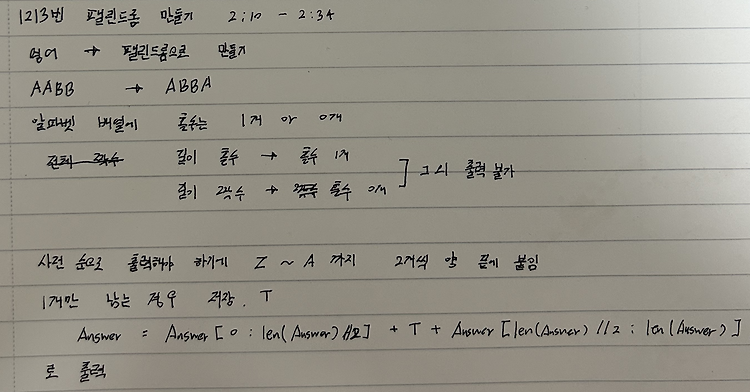 1213번 팰린드롬 만들기 2:10 - 2:34
영어 → 팰린드롬으로 만들기
AABB → ABBA
알파벳 배열에 홀수는 1개 or 0개
전체 짝수 길이 홀수 → 홀수 1개
길이 짝수 → 홀수 0개 ] 그 시 출력 불가
사전 순으로 출력해야 하기에 Z ~ A 까지 2개씩 양 끝에 붙임
1개만 남는 경우 저장. T
Answer = Answer [ 0 : len(Answer) //2 ] + T + Answer [ len(Answer) //2 : len(Answer) ]
로 출력